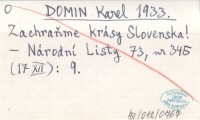 O DOMIN Karel 1933.
Zachraňme krásy Slovenska!
– Národní Listy 73, nr 345
(17 XII): 9.